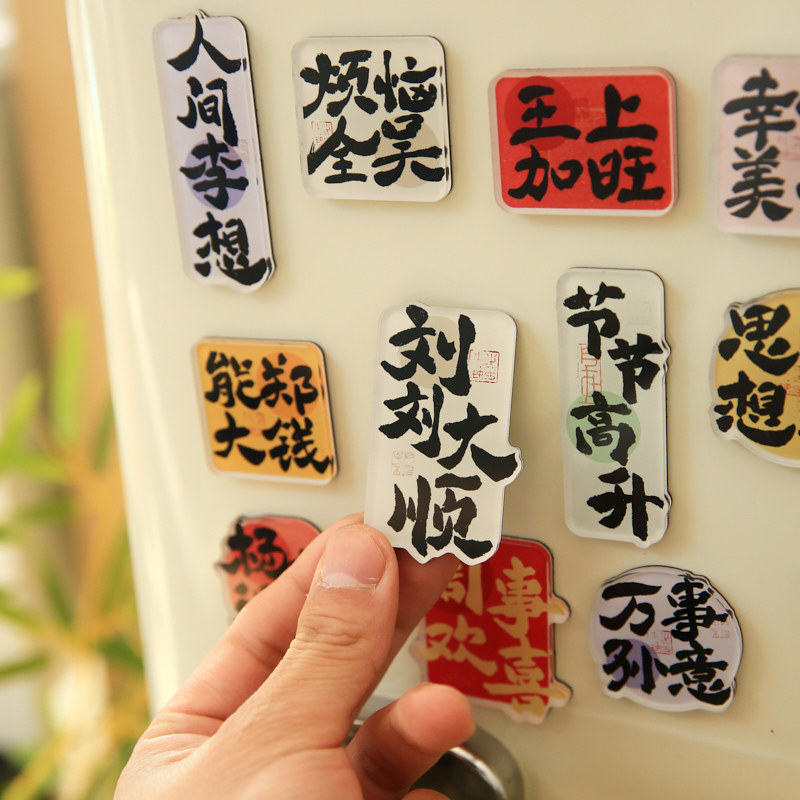 人间李想
烦恼
全吴
王上
加旺
幸
美
能郑
大钱
刘
刘大
顺
节节高升
思
想
杨
事
欢喜
万事
孙意